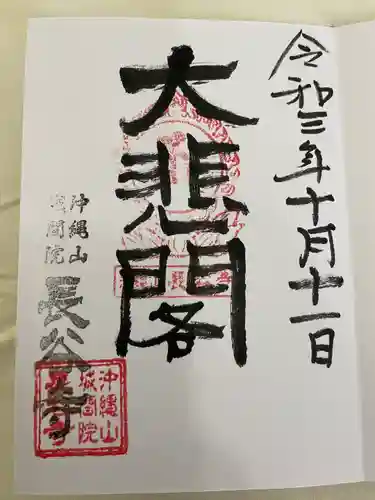 令和三年十月十一日
大悲閣
沖縄山
長谷寺
沖縄山
城間院